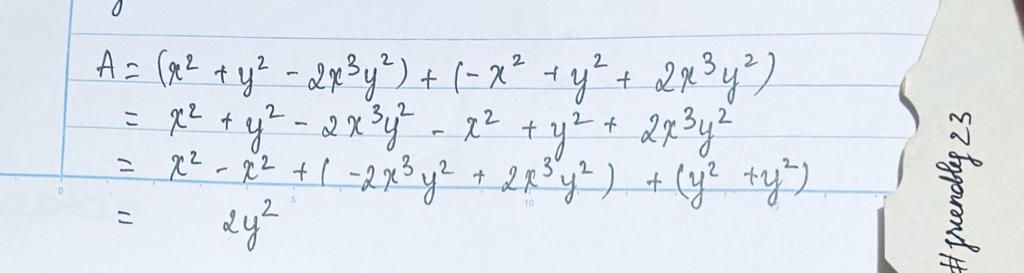 A = (x² + y² - 2x³y²) + (-x² + y² + 2x³y²)
= x² + y² - 2x³y² - x² + y² + 2x³y²
= x² - x² + (-2x³y² + 2x³y²) + (y² + y²)
= 2y²
#friendly23